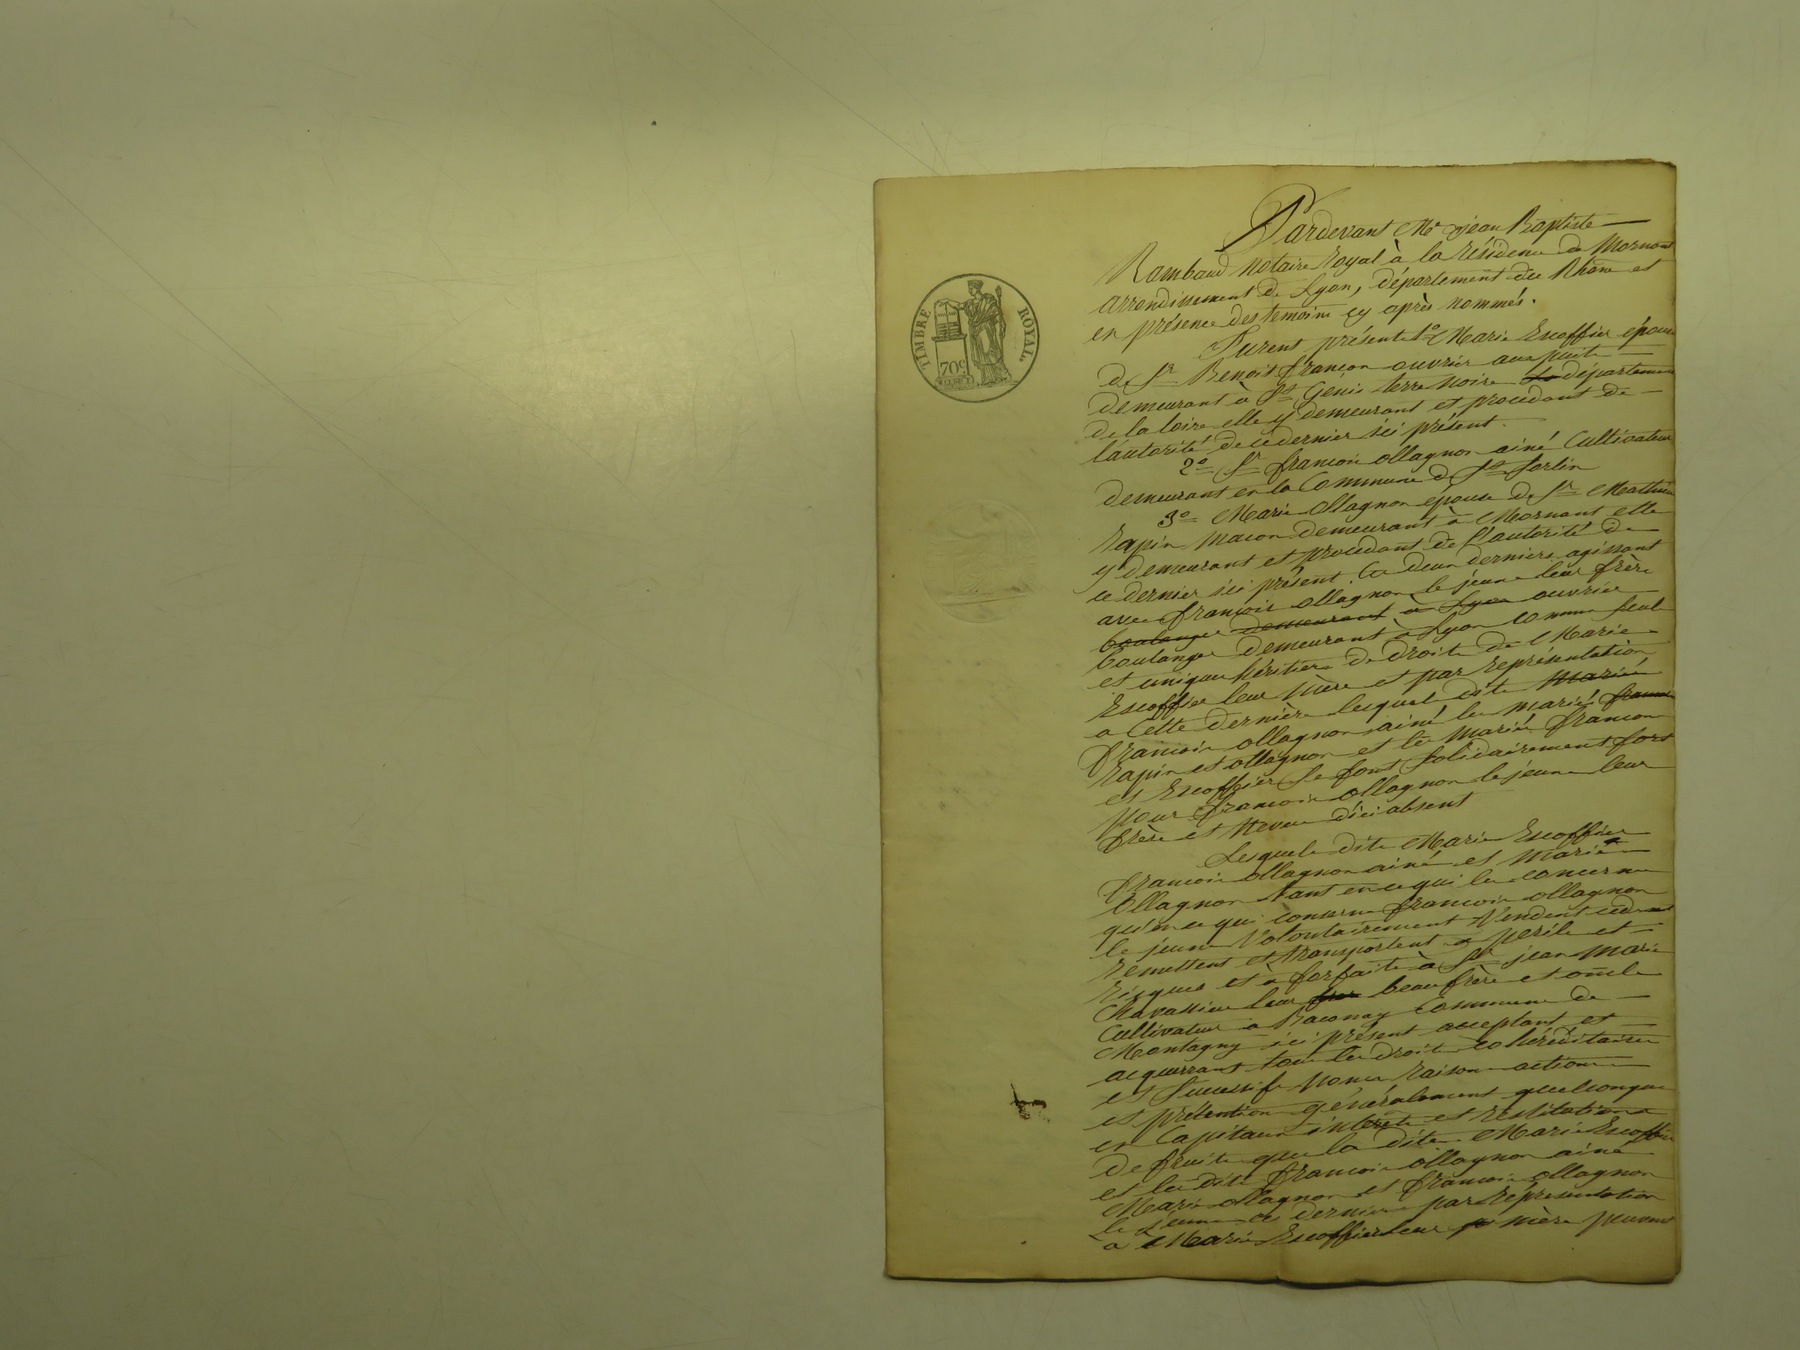 TIMBRE ROYAL
70c
Pardevant Me jean Baptiste
Rambaud notaire royal à la résidence de Mornant
arrondissement de Lyon, département du Rhône et
en présence des temoins cy après nommés.
Furent présents 1o Marie Escoffier épouse
de Sr Benoit françon ouvrier aux puits
demeurant à St Genis terre noire département
de la loire elle y demeurant et procédant de
l'autorité de ce dernier ici présent.
2o Sr francois ollagnon ainé Cultivateur
demeurant en la Commune de St Sorlin
3o Marie ollagnon épouse de Sr Mathieu
rapin macon demeurant à Mornant elle
y demeurant et procedant de l'autorité de
ce dernier ici présent. Ces deux derniers agissant
avec francois ollagnon le jeune leur frère
boulanger demeurant à Lyon ouvrier
boulanger demeurant à Lyon comme seuls
et uniques héritiers de droit de Marie
Escoffier leur mère et par représentation
a cette dernière lesquels dits mariés
francois ollagnon ainé les mariés
rapin et ollagnon et les mariés françon
et Escoffier se font solidairement fort
pour francois ollagnon le jeune leur
frère et neveu d'ici absent
Lesquels dits Marie Escoffier
francois ollagnon ainé et marie
Ollagnon tant en ce qui les concerne
qu'en ce qui concerne francois ollagnon
le jeune Volontairement Vendent cèdent
remettent et transportent a périls et
risques et à forfaits à Sr jean marie
Chavassieu leur beau frère et oncle
Cultivateur à Baconay Commune de
Montagny ici présent acceptant et
acquerrant tous les droits cohéréditaires
et successifs noms raisons actions
et prétentions généralement quelconques
en Capitaux intérêts et restitutions
de fruits que la dite Marie Escoffier
et les dits francois ollagnon ainé
Marie ollagnon et francois ollagnon
le jeune ce dernier par représentation
a Marie Escoffier leur mère peuvent